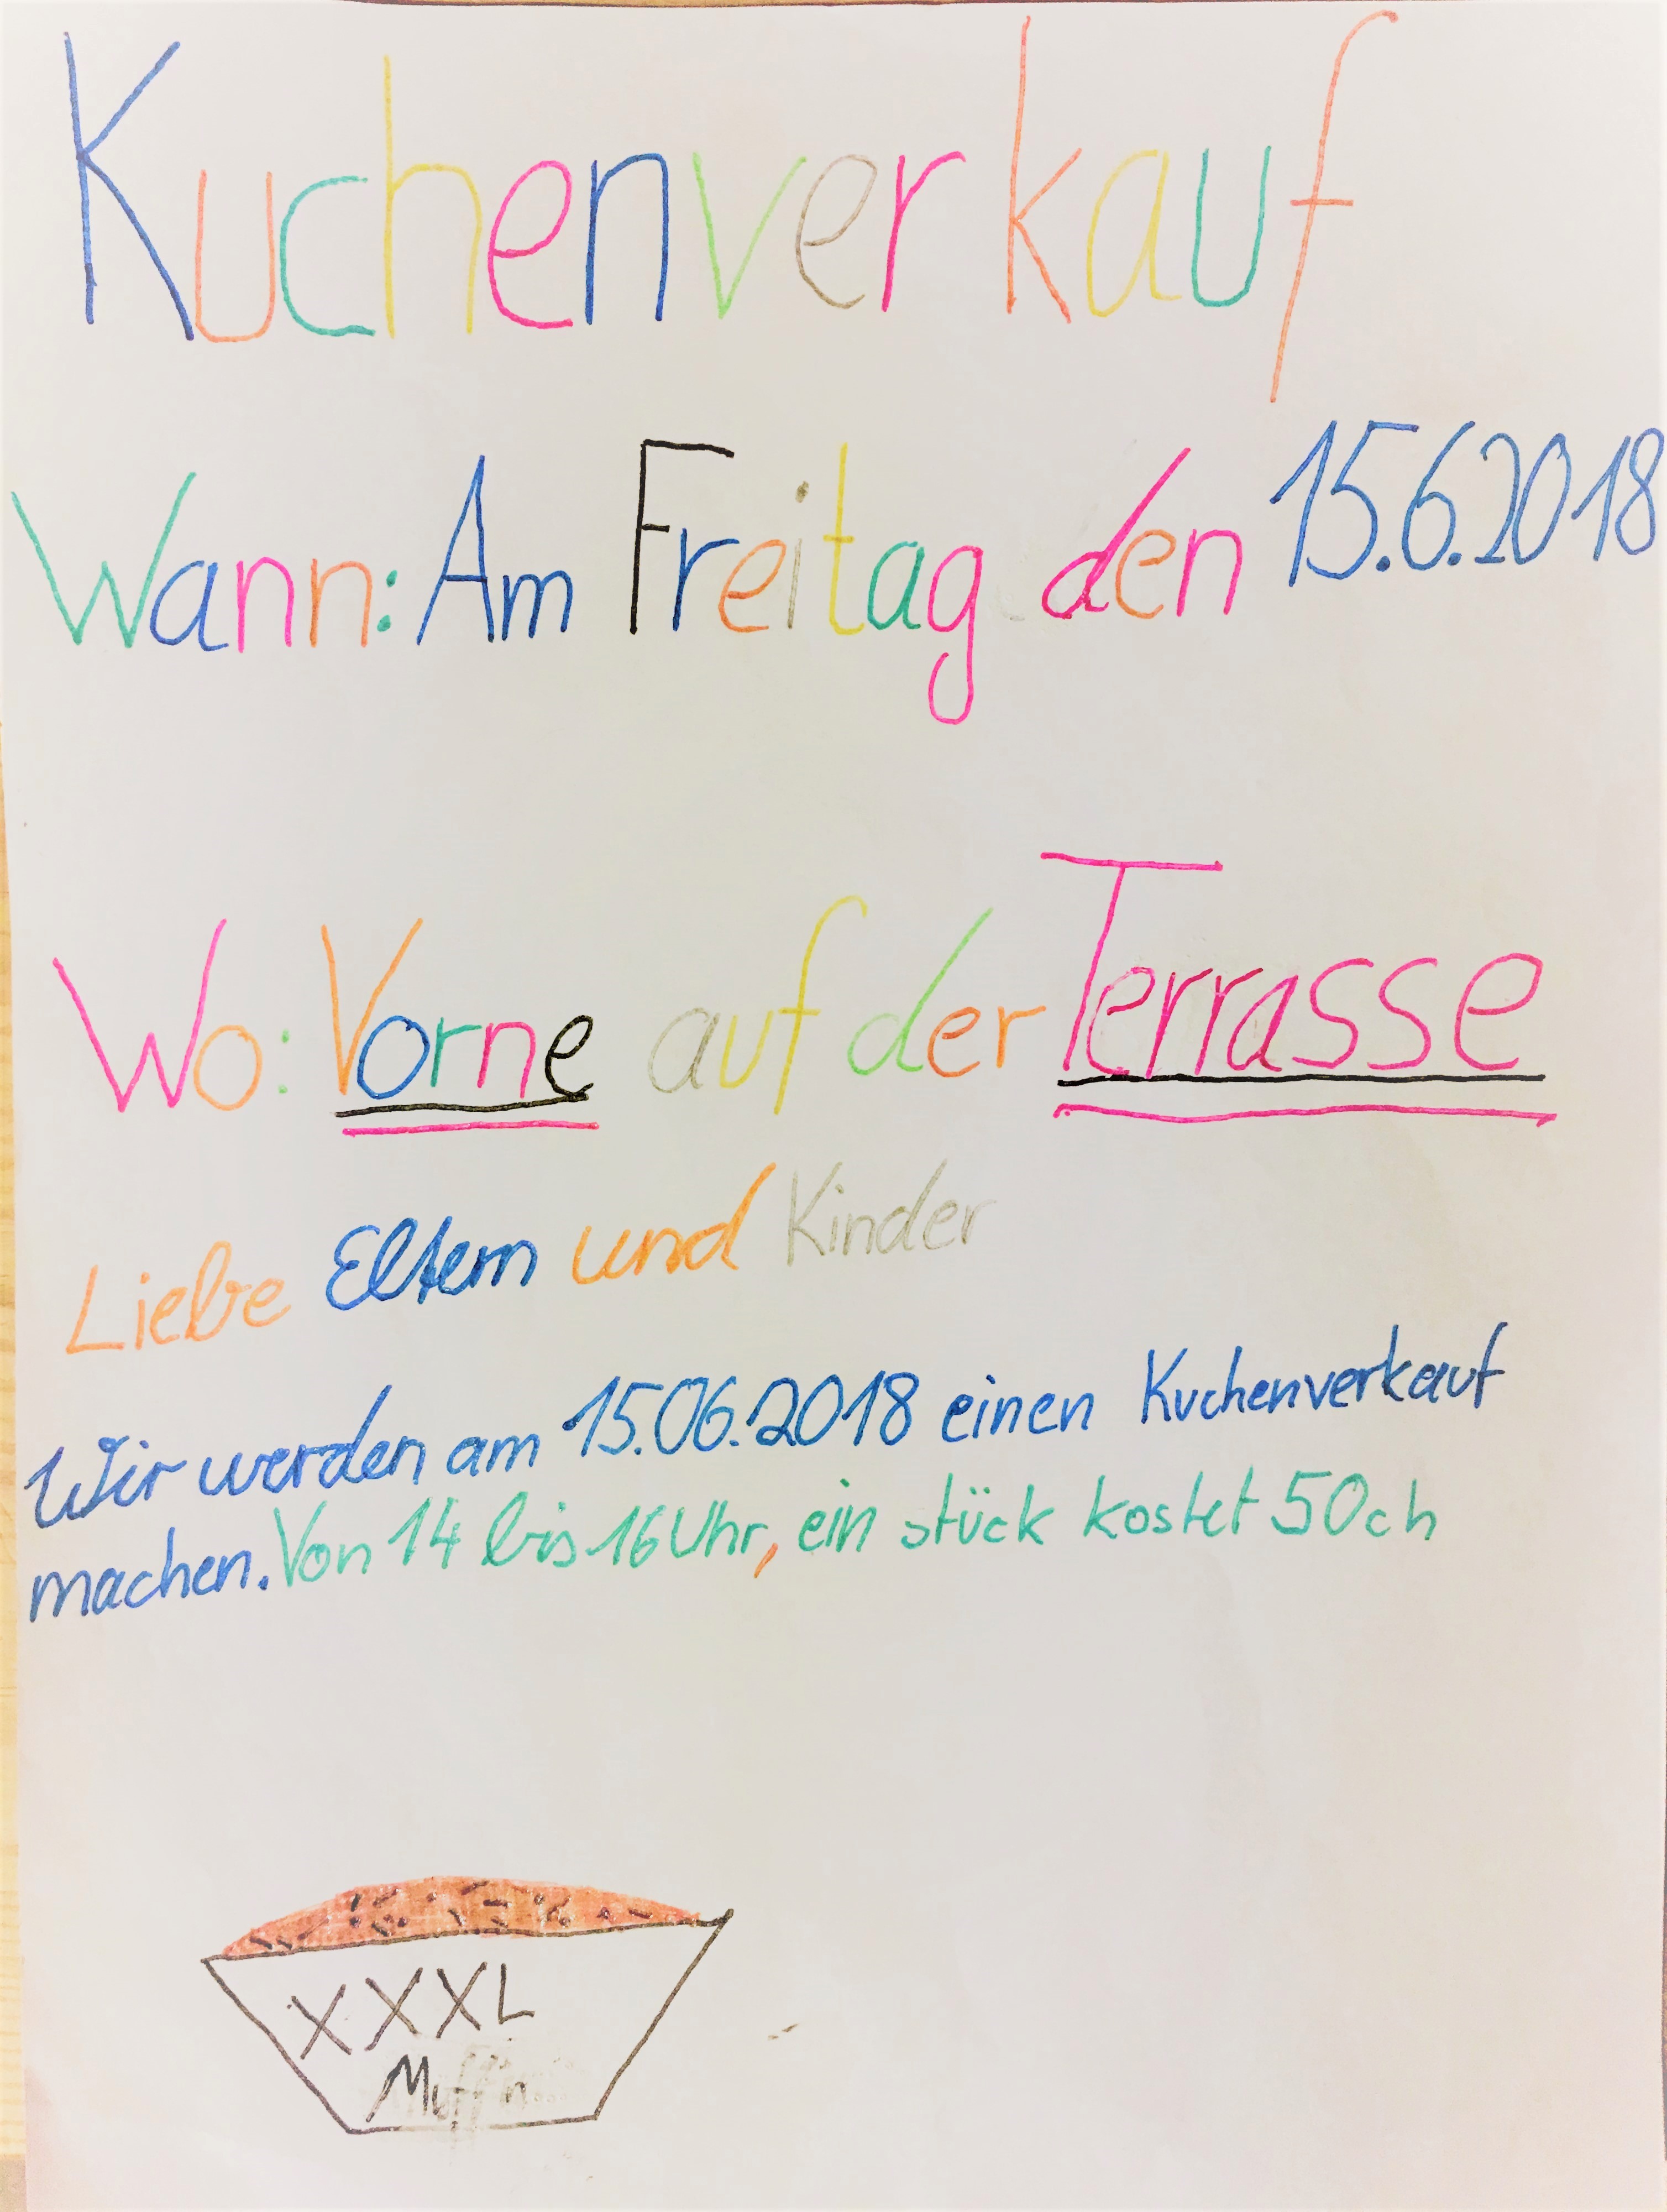 Kuchenverkauf
Wann: Am Freitag den 15.6.2018
Wo: Vorne auf der Terrasse
Liebe Eltern und Kinder
Wir werden am 15.06.2018 einen Kuchenverkauf
machen. Von 14 bis 16 Uhr, ein stück kostet 50ch
XXXL
Muffin